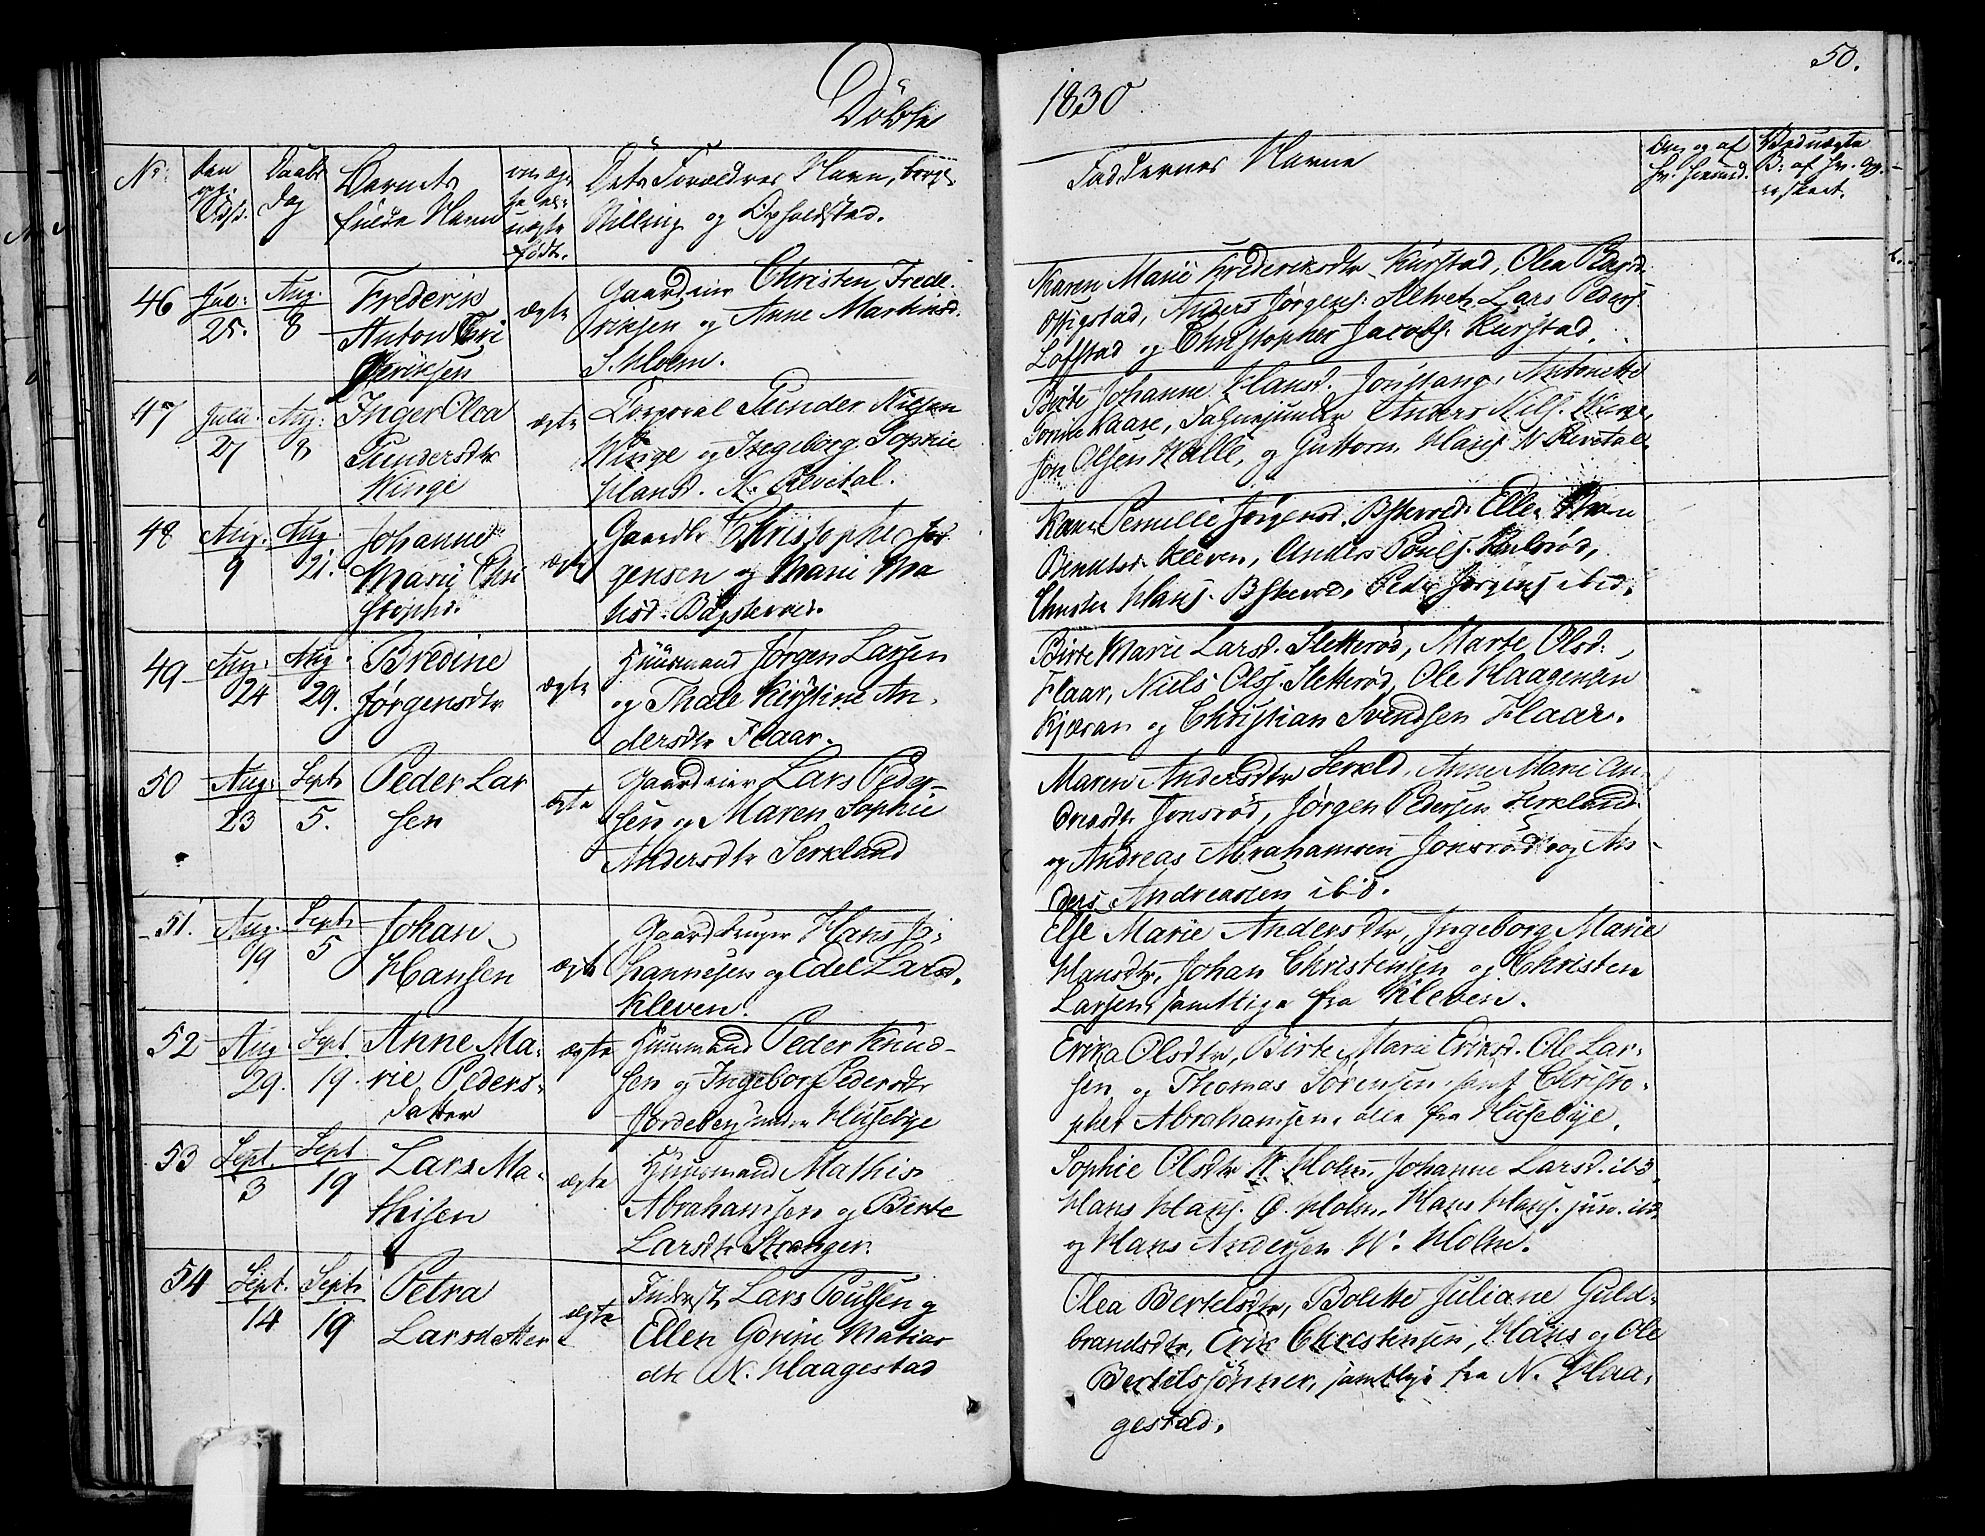 Döbte
1830
50.
No:
Daabs
Dag
Barnets
fulde Navn
om ægte
uægte
født.
Dets Forældres Navn, borgl.
Stilling og Opholdsted.
Faddernes Navne
46 Jul: 25. Aug. 8
Frederik
Anton
ægte
Gaardeier Christen Frede-
riksen og Anne Martinsd.
S. Holm.
Karen Marie Frederiksdtr Kirstad, Olea
Anders Jørgens: Lars Peders
Løfstad og Christopher Jacobs. Kirstad.
47 Julii 27 Aug: 8
Inger Olea
Gundersdtr
Winge
ægte
Corporal Gunder Nilsen
Winge og Ingeborg Sophie
Hansd. N. Revetal.
Birte Johanne Hansd. Antonette
Anders Nils. Winge,
Olsen og Guttorm Hans. N. Revetal.
48 Aug. 9 Aug. 21.
Johanne
Marie Chri
stophd.
ægte
Gaardbr Christopher Jør
gensen og Marie Ma
Bøgskerud.
Pernille Jørgensd. Ellen
Kleven, Anders Pouls.
Christen Hans. Peder Jørgens ibid.
49 Aug. 24 Aug. 29.
Bredine
Jørgensdtr
ægte
Huusmand Jørgen Larsen
og Thale Kirstine An-
dersdtr Flaar.
Birte Marie Larsd. Sletterød, Marte Olsd.
Flaar, Niels Ols. Sletterød, Ole Haagensen
Kjæran og Christian Svendsen Flaar.
50 Aug: 23 Sept 5.
Peder Lar
sen
ægte
Gaardeier Lars Peder-
sen og Maren Sophie
Andersdtr Serkland
Maren Andersdtr Serkld, Anne Marie An-
dreasdtr Jonsrød, Jørgen Pedersen Serkland
og Andreas Abrahamsen Jonsrød og An-
ders Andreassen ibid.
51. Aug. 19 Sept 5
Johan
Hansen
ægte
Gaardbruger Hans Jo-
hannesen og Edel Larsd.
Kleven.
Else Marie Andersdtr, Ingeborg Marie
Hansdtr, Johan Christensen og Christen
Larsen, samtlige fra Kleven.
52 Aug 29. Sept. 19.
Anne Ma-
rie Peders-
datter
ægte
Huusmand Peder Knud-
sen og Ingeborg Pedersdtr
Jordeberg under Husebye
Erika Olsdtr, Birte Marie Eriksd. Ole Lar-
sen og Thomas Sørensen samt Christo-
pher Abrahamsen, alle fra Husebye.
53 Sept. 3 Sept 19
Lars Ma-
thisen
ægte
Huusmand Mathis
Abrahamsen og Birte
Larsdtr Stranger.
Sophie Olsdtr N. Holm, Johanne Larsd. ibd,
Hans Hans. Ø. Holm, Hans Hans. jun. ibd,
og Hans Andersen W. Holm.
54 Sept. 14 Sept 19
Petra
Larsdatter
ægte
Inderst Lars Poulsen og
Ellen Gorine Matias
dtr N. Haagestad
Olea Bertelsdtr, Bolette Juliane Guld-
brandsdtr, Erik Christensen, Hans og Ole
Bertelssønner, samtlige fra N. Haa-
gestad.